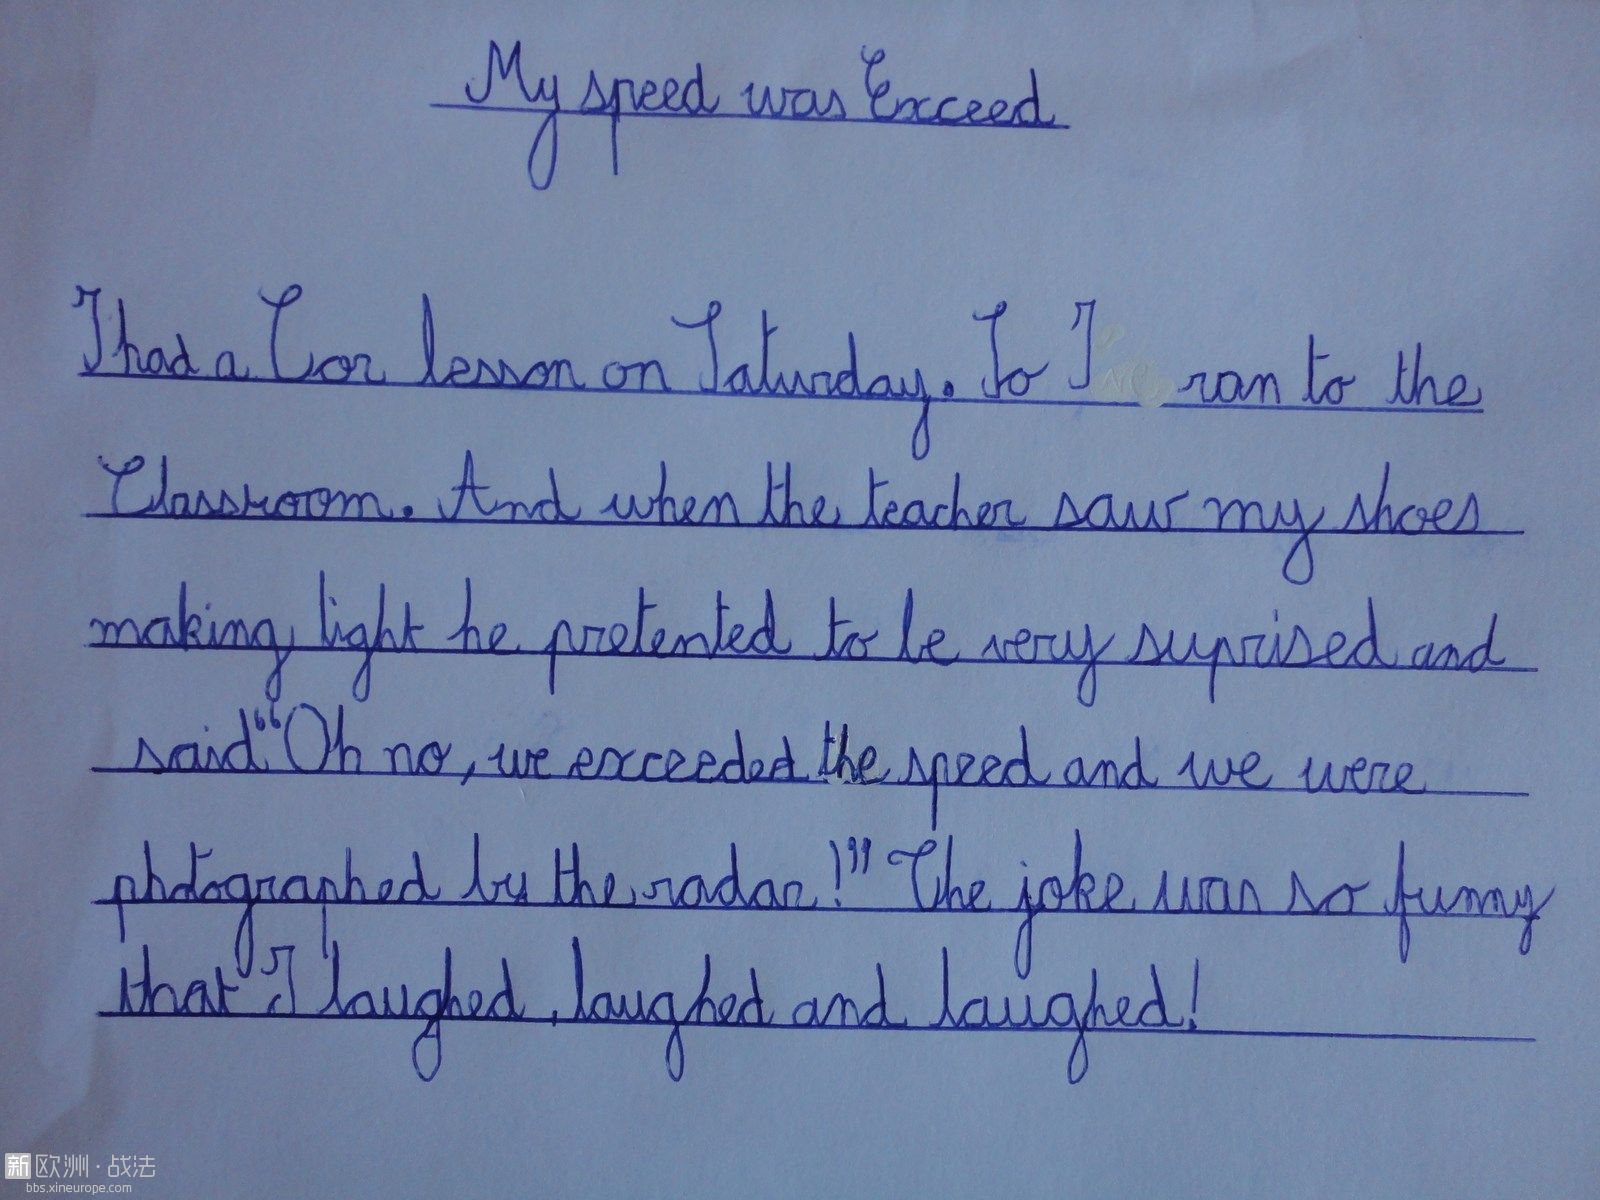 My speed was Exceed
I had a Cor lesson on Saturday. So I ran to the
Classroom. And when the teacher saw my shoes
making light he pretented to be very suprised and
said“Oh no, we exceeded the speed and we were
photographed by the radar!” The joke was so funny
that I laughed, laughed and laughed!
新欧洲·战法
bbs.xineurope.com